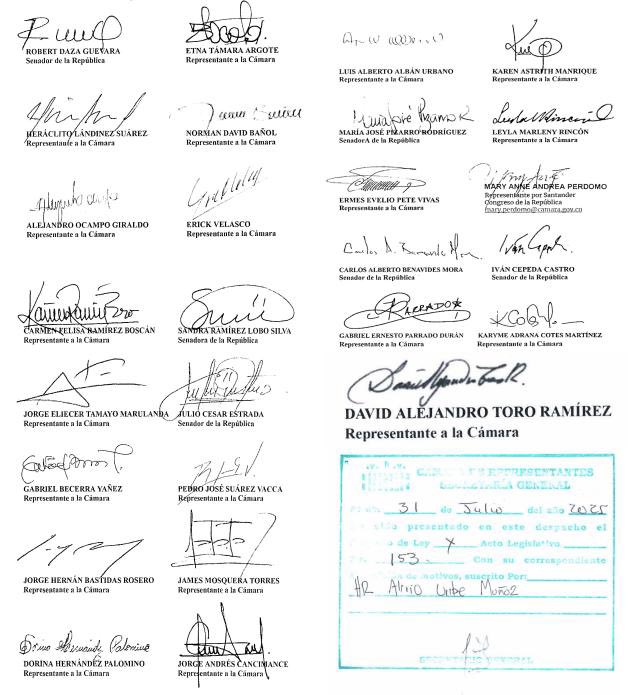 ROBERT DAZA GUEVARA
Senador de la República
ETNA TÁMARA ARGOTE
Representante a la Cámara
HERÁCLITO LÁNDINEZ SUÁREZ
Representante a la Cámara
NORMAN DAVID BAÑOL
Representante a la Cámara
Alejandro Ocampo
ALEJANDRO OCAMPO GIRALDO
Representante a la Cámara
ERICK VELASCO
Representante a la Cámara
CARMEN FELISA RAMÍREZ BOSCÁN
Representante a la Cámara
SANDRA RAMÍREZ LOBO SILVA
Senadora de la República
JORGE ELIECER TAMAYO MARULANDA
Representante a la Cámara
JULIO CESAR ESTRADA
Senador de la República
GABRIEL BECERRA YAÑEZ
Representante a la Cámara
PEDRO JOSÉ SUÁREZ VACCA
Representante a la Cámara
JORGE HERNÁN BASTIDAS ROSERO
Representante a la Cámara
JAMES MOSQUERA TORRES
Representante a la Cámara
Dorina Hernández Palomino
DORINA HERNÁNDEZ PALOMINO
Representante a la Cámara
JORGE ANDRÉS CANCIMANCE
Representante a la Cámara
LUIS ALBERTO ALBÁN URBANO
Representante a la Cámara
KAREN ASTRITH MANRIQUE
Representante a la Cámara
María José Pizarro R
MARÍA JOSÉ PIZARRO RODRÍGUEZ
SenadorA de la República
Leyla M Rincón
LEYLA MARLENY RINCÓN
Representante a la Cámara
ERMES EVELIO PETE VIVAS
Representante a la Cámara
MARY ANNE ANDREA PERDOMO
Representante por Santander
Congreso de la República
mary.perdomo@camara.gov.co
Carlos A. Benavides Mora
CARLOS ALBERTO BENAVIDES MORA
Senador de la República
Iván Cepeda
IVÁN CEPEDA CASTRO
Senador de la República
PARRADO
GABRIEL ERNESTO PARRADO DURÁN
Representante a la Cámara
KARYME ADRANA COTES MARTÍNEZ
Representante a la Cámara
DAVID ALEJANDRO TORO RAMÍREZ
Representante a la Cámara
CÁMARA DE REPRESENTANTES
SECRETARÍA GENERAL
31 de Julio del año 2025
sido presentado en este despacho el
de Ley X Acto Legislativo
153 Con su correspondiente
de motivos, suscrito Por:
HR Alirio Uribe Muñoz
SECRETARIO GENERAL